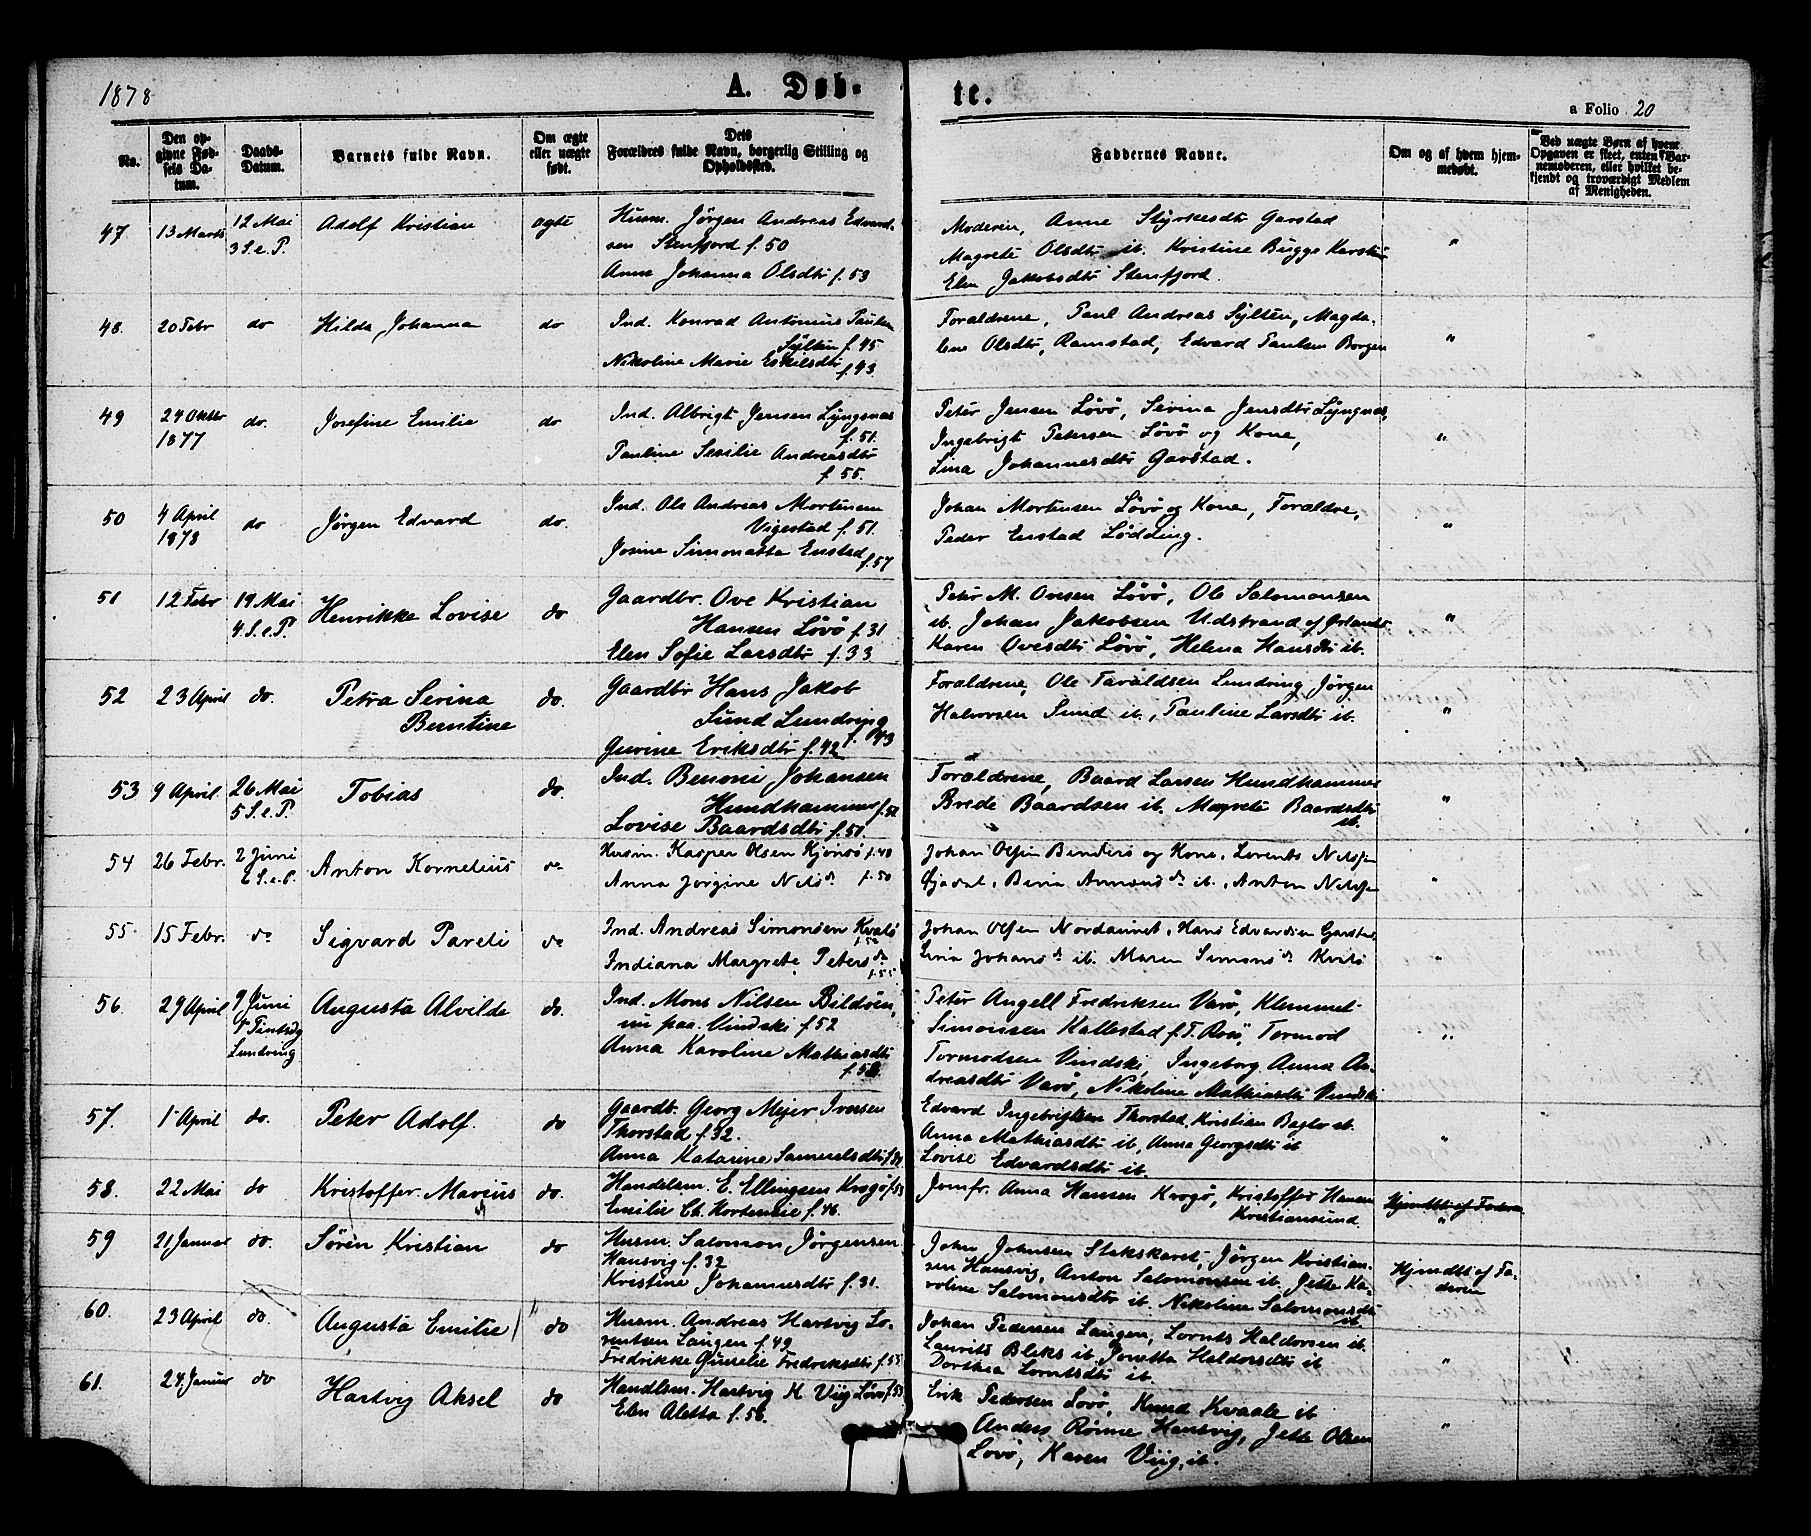 1878
A. Døb-
te.
a Folio 20
No.
Den op-
givne Fød-
sels Da-
tum.
Daabs-
Datum.
Barnets fulde Navn.
Om ægte
eller uægte
født.
Dets
Forældres fulde Navn, borgerlig Stilling og
Opholdssted.
Faddernes Navne.
Om og af hvem hjem-
medøbt.
Ved uægte Børn af hvem
Opgaven er skeet, enten Bar-
nemoderen, eller hvilket be-
kjendt og troværdigt Medlem
af Menigheden.
47
13 Marts
12 Mai
3 S.e.P.
Adolf Kristian
ægte
Husm. Jørgen Andreas Edvard-
sen Stenfjord f. 50
Anna Johanna Olsdtr f. 53
Moderen, Anne Styrkesdtr Garstad
Magrete Olsdtr ib. Kristine Bugge
Elen Jakobsdtr Stenfjord.
"
48.
20 Febr
do
Hilda Johanna
do
Ind. Konrad Antonius Paulsen
Sylten f. 45
Nikoline Marie Eskilsdtr
f. 43.
Forældrene, Paul Andreas Sylten, Magda-
lene Olsdtr, Ramstad, Edvard Paulsen Borgen
"
49
24 Oktbr
1877
do.
Josefine Emilie
do
Ind. Albrigt Jensen Lyngsnes
f. 51.
Pauline Sesilie Andreasdtr
f. 55.
Peter Jensen Lövö, Serina Jensdtr Lyngnes,
Ingebrigt Petersen Lövö og Kone,
Sina Johannesdtr Garstad.
"
50
4 April
1878
do
Jørgen Edvard
do.
Ind. Ole Andreas Mortensen
Vigestad f. 51.
Josine Simonatta Enstad
f. 57
Johan Mortensen Lövö og Kone, Forældre,
Peder Enstad Lödding.
"
51
12 Febr
19 Mai
4 S.e.P.
Henrikke Lovise
do
Gaardbr. Ove Kristian
Hansen Lövö f. 31
Elen Sofie Larsdtr f. 33
Peter M. Ovesen Lövö, Ole Salomonsen
ib. Johan Jakobsen Udstrand af Ørlandet
Karen Ovesdtr Lövö, Helena Hansdtr ib.
"
52
23 April
do.
Petra Serina
Berntine
do.
Gaardbr Hans Jakob
Sund Lundring
f. 43
Gurine Eriksdtr f. 42
Forældrene, Ole Taraldsen Lundring Jörgen
Halvorsen Sund ib., Pauline Larsdtr ib.
"
53
9 April.
26 Mai
5 S.e.P.
Tobias
do.
Ind. Benoni Johansen
Hundhammer f. 52
Lovise Baardsdtr f. 50.
Forældrene, Baard Larsen Hundhammer
Brede Baardsen ib. Magrete Baardsdtr
ib.
"
54
26 Febr.
2 Juni
6 S.e.P.
Anton Kornelius
do
Husm. Kasper Olsen f. 48
Anna Jørgine Nilsdr f. 50
Johan Olsen og Kone, Lorents Nilsen
ib., Anton Nilsen
"
55.
15 Febr.
do
Sigvard Pareli
do
Ind. Andreas Simonsen Kvalö
Indiana Margrete Petersdr
f. 55
Johan Olsen Nordaunet, Hans Edvardsen Garstad
Lina Johansdr ib. Maren Simonsdr
"
56.
29 April
9 Juni
1 Pintsdg
Lundring
Augusta Alvilde
do.
Ind. Mons Nilsen Bildöen,
nu paa Vindski f. 52
Anna Karoline Mathiasdtr
f. 58
Peter Angell Fredriksen Varö, Klemmet
Simonsen Kallestad f.T. Rosö, Tormod
Tormodsen Vindski, Ingeborg Anna An-
dreasdtr Varö, Nikoline Mathiasdtr Vindski
"
57.
1 April
do.
Peter Adolf.
do
Gaardb. Georg Mejer Iversen
Thorstad f. 32.
Anna Katarine Samuelsdtr
Edvard Ingebrigtsen Thorstad, Kristian ib.
Anna Mathiasdtr ib, Anna Georgsdtr ib
Lovise Edvardsdtr ib.
"
58.
22 Mai
do
Kristoffer Marius
do.
Handelsm. E. Ellingsen Krogö f. 53
Emilie Ch. Hortensie f. 46.
Jomfr. Anna Hansen Krogö, Kristoffer Hansen
Kristiansund.
Hjmdbt af Faderen
"
59
21 Januar
do.
Sören Kristian
do
Husm. Salomon Jörgensen
Hansvig f. 32
Kristine Johannesdtr f. 31.
John Johnsen Slakskaret, Jörgen Kristian-
sen Hansvig, Anton Salomonsen ib. Jette Ka-
roline Salomonsdtr ib. Nikoline Salomonsdtr
ib.
Hjmdbt af Fa-
deren
60.
23 April
do.
Augusta Emilie
do
Husm. Andreas Hartvig Lo-
rentsen Laugen f. 49
Fredrikke Gurelie Fredriksdtr f. 55
Johan Pedersen Laugen, Lornts Haldorsen ib.
Laurits Bleks ib. Jonetta Haldorsdtr ib
Dorthea Lorntsdtr ib.
"
61.
24 Januar
do
Hartvig Aksel
do
Handlsm. Hartvig H Viig Lövö f. 53
Elen Aletta f. 56.
Erik Pedersen Lovö, Knud Kvaale ib
Anders Rönne Hansvig, Jette Olsen
Lovö, Karen Viig, ib.
"